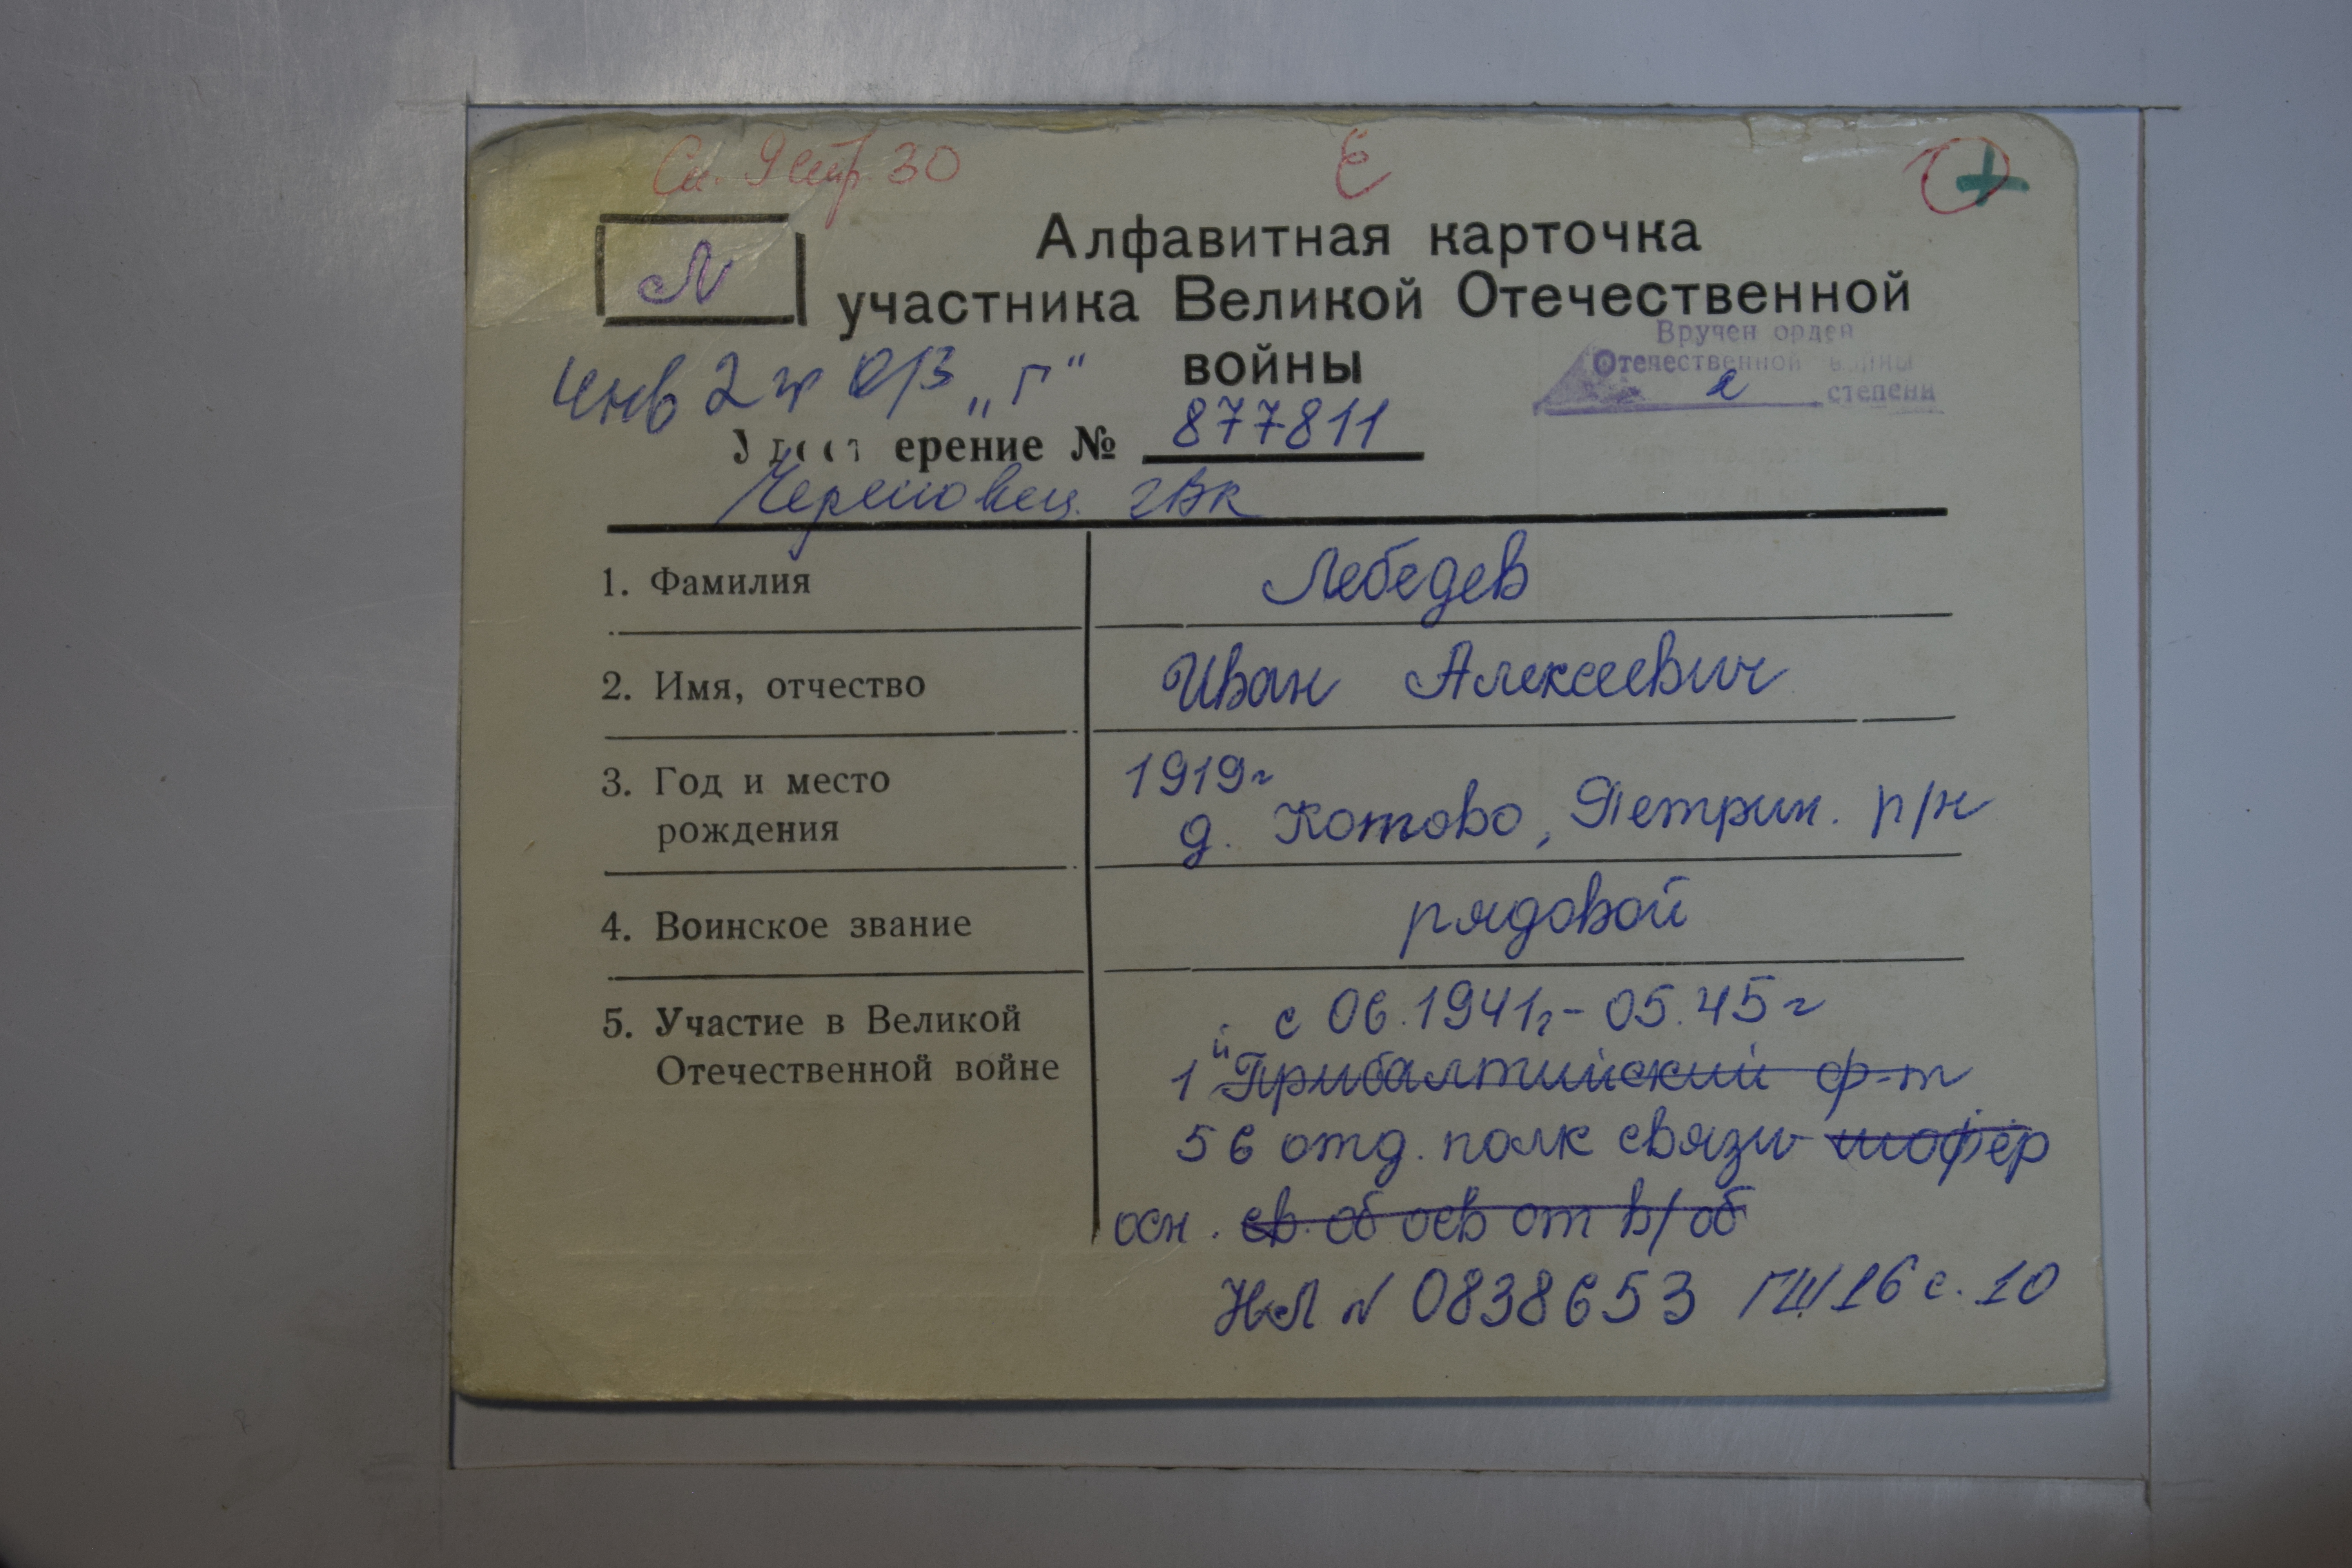 Сп. 9 стр 30
Ё
+
Л
Алфавитная карточка
участника Великой Отечественной
войны
Вручен орден
Отечественной войны
2 степени
Инв 2 гр О/З „Г“
ерение № 877811
Череповец. гвк
1. Фамилия
Лебедев
2. Имя, отчество
Иван Алексеевич
3. Год и место
рождения
1919г
д. Котово, Петрин. р/н
4. Воинское звание
рядовой
5. Участие в Великой
Отечественной войне
с 06.1941г - 05.45г
1й Прибалтийский ф-т
56 отд. полк связи шофёр
осн. св. об осв от в/об
НЛ № 0838653 ГШ 16 с. 10